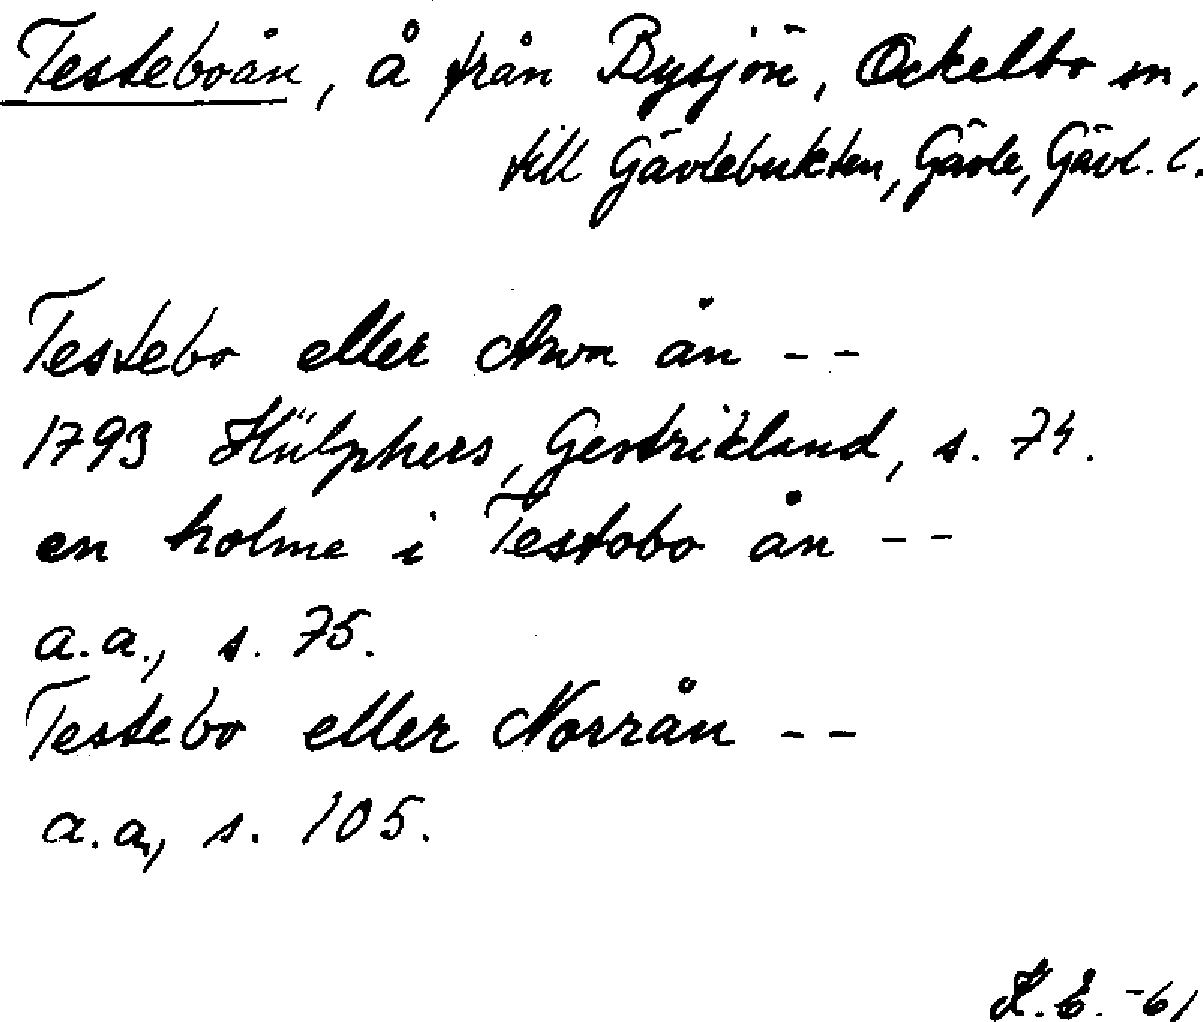 Testeboån, å från Bysjön, Ockelbo sn,
till Gävlebukten, Gävle, Gävl. l.
Testebo eller Awa ån - -
1793 Hülphers, Gestrikland, s. 74.
en holme i Testobo ån - -
a.a., s. 75.
Testebo eller Norrån - -
a.a., s. 105.
K. E. -61